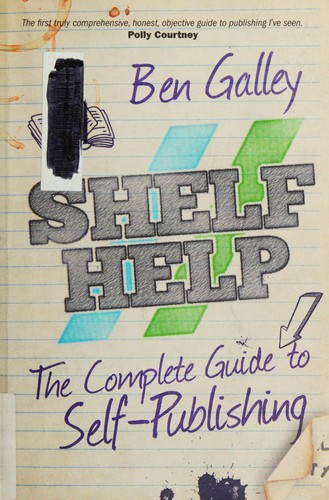 The first truly comprehensive, honest, objective guide to publishing I've seen.
Polly Courtney
Ben Galley
SHELF
HELP
The Complete Guide to
Self-Publishing